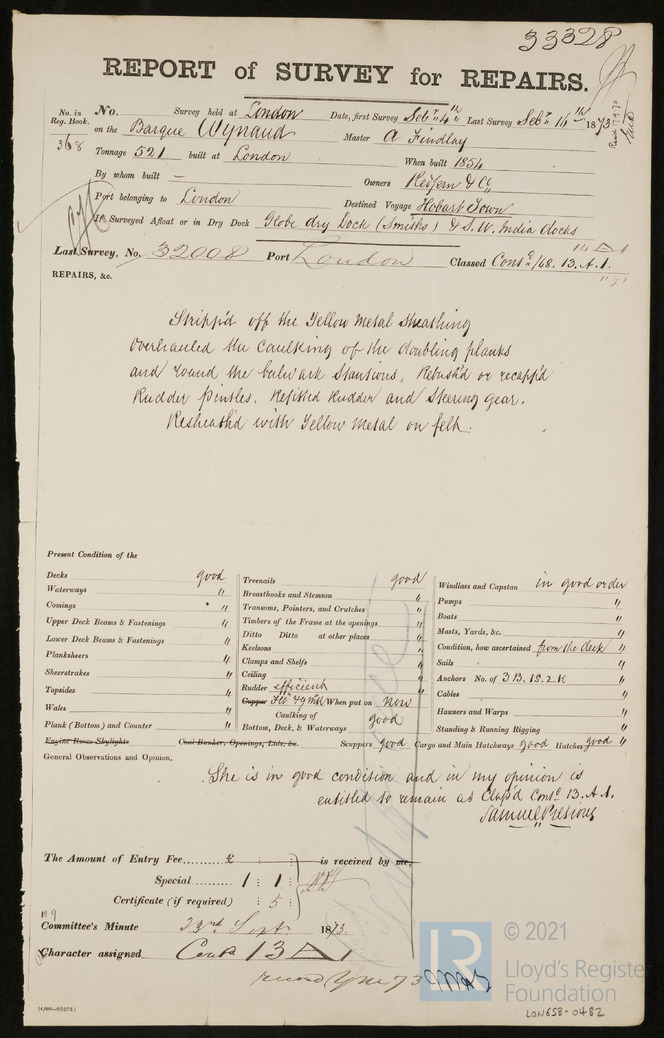 33328
REPORT of SURVEY for REPAIRS.
No. in Reg. Book. No. Survey held at London Date, first Survey Sebr 4th Last Survey Sebr 16th 1873
368 on the Barque Wynaud Master A Findlay
Tonnage 521 built at London When built 1854
By whom built — Owners Redfern & Co
Port belonging to London Destined Voyage Hobart Town
If Surveyed Afloat or in Dry Dock Globe dry Dock (Smiths) & S. W. India docks
Last Survey, No. 32008 Port London Classed Contd /68. 13. A.1.
REPAIRS, &c.
Stripp'd off the Yellow Metal Sheathing
Overhauled the Caulking of the doubling planks
and round the bulwark Stantions, Rebush'd or recapp'd
Rudder Pintles. Refitted Rudder and Steering gear.
Resheath'd with Yellow Metal on felt.
Present Condition of the
Decks good
Waterways "
Comings "
Upper Deck Beams & Fastenings "
Lower Deck Beams & Fastenings "
Planksheers "
Sheerstrakes "
Topsides "
Wales "
Plank (Bottom) and Counter "
Engine Room Skylights Coal Bunker, Openings, Lids, &c.
Treenails good
Breasthooks and Stemson "
Transoms, Pointers, and Crutches "
Timbers of the Frame at the openings "
Ditto Ditto at other places "
Keelsons "
Clamps and Shelfs "
Ceiling "
Rudder efficient
Copper When put on now
Caulking of
Bottom, Deck, & Waterways good
Scuppers good Cargo and Main Hatchways good Hatches good "
Windlass and Capstan in good order
Pumps "
Boats "
Masts, Yards, &c. "
Condition, how ascertained from the deck "
Sails "
Anchors No. of 3 B. 1S. 2 K "
Cables "
Hawsers and Warps "
Standing & Running Rigging "
General Observations and Opinion,
She is in good condition and in my opinion is
entitled to remain as Class'd Contd 13. A.1.
Samuel Pretious
The Amount of Entry Fee £ : : is received by me,
Special 1 : 1 :
Certificate (if required) : 5 :
Committee's Minute 23rd Sept 1873.
Character assigned Contd 13 A 1
© 2021
LR
Lloyd's Register
Foundation
LON658-0482